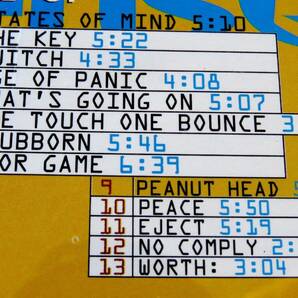 TATES OF MIND 5:10
HE KEY 5:22
WITCH 4:33
GE OF PANIC 4:08
AT'S GOING ON 5:07
E TOUCH ONE BOUNCE 3
UBBORN 5:46
OR GAME 6:39
9 PEANUT HEAD
10 PEACE 5:50
11 EJECT 5:19
12 NO COMPLY 2:
13 WORTH: 3:04